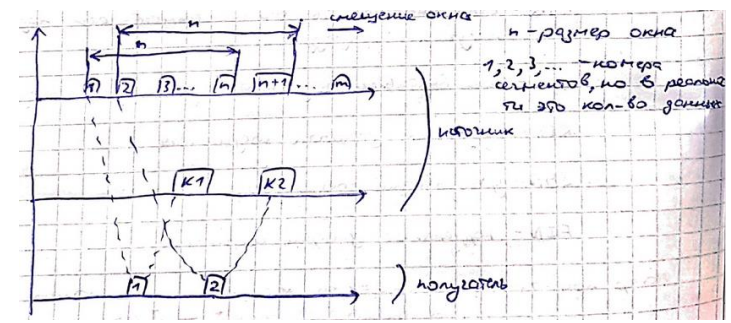 n
смещение окна
n
n - размер окна
1, 2, 3, ... - номера
сегментов, но в реально
сти это кол-во данных
1 2 3 ... n n+1 ... m
источник
К1 К2
1 2
получатель